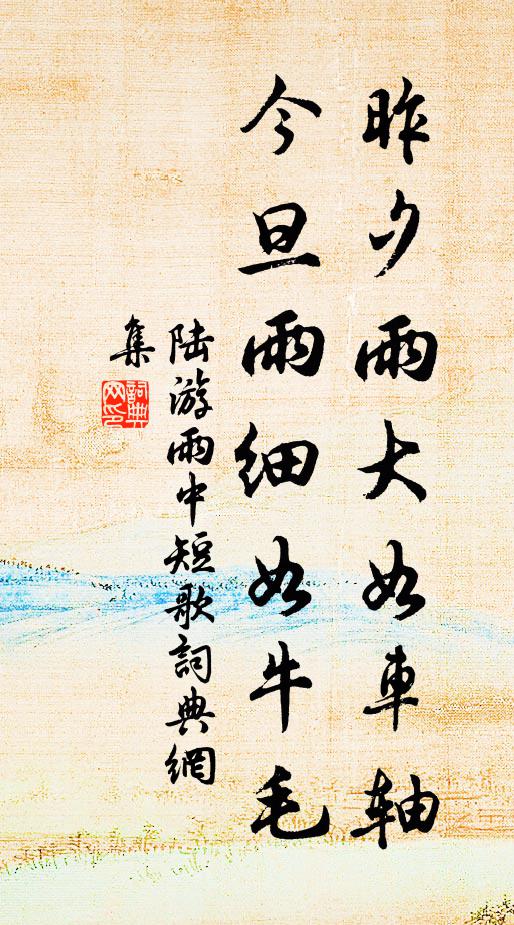 昨夕雨大如車轴
今旦雨细如牛毛
陆游雨中短歌詞典網
集
詞典
网印